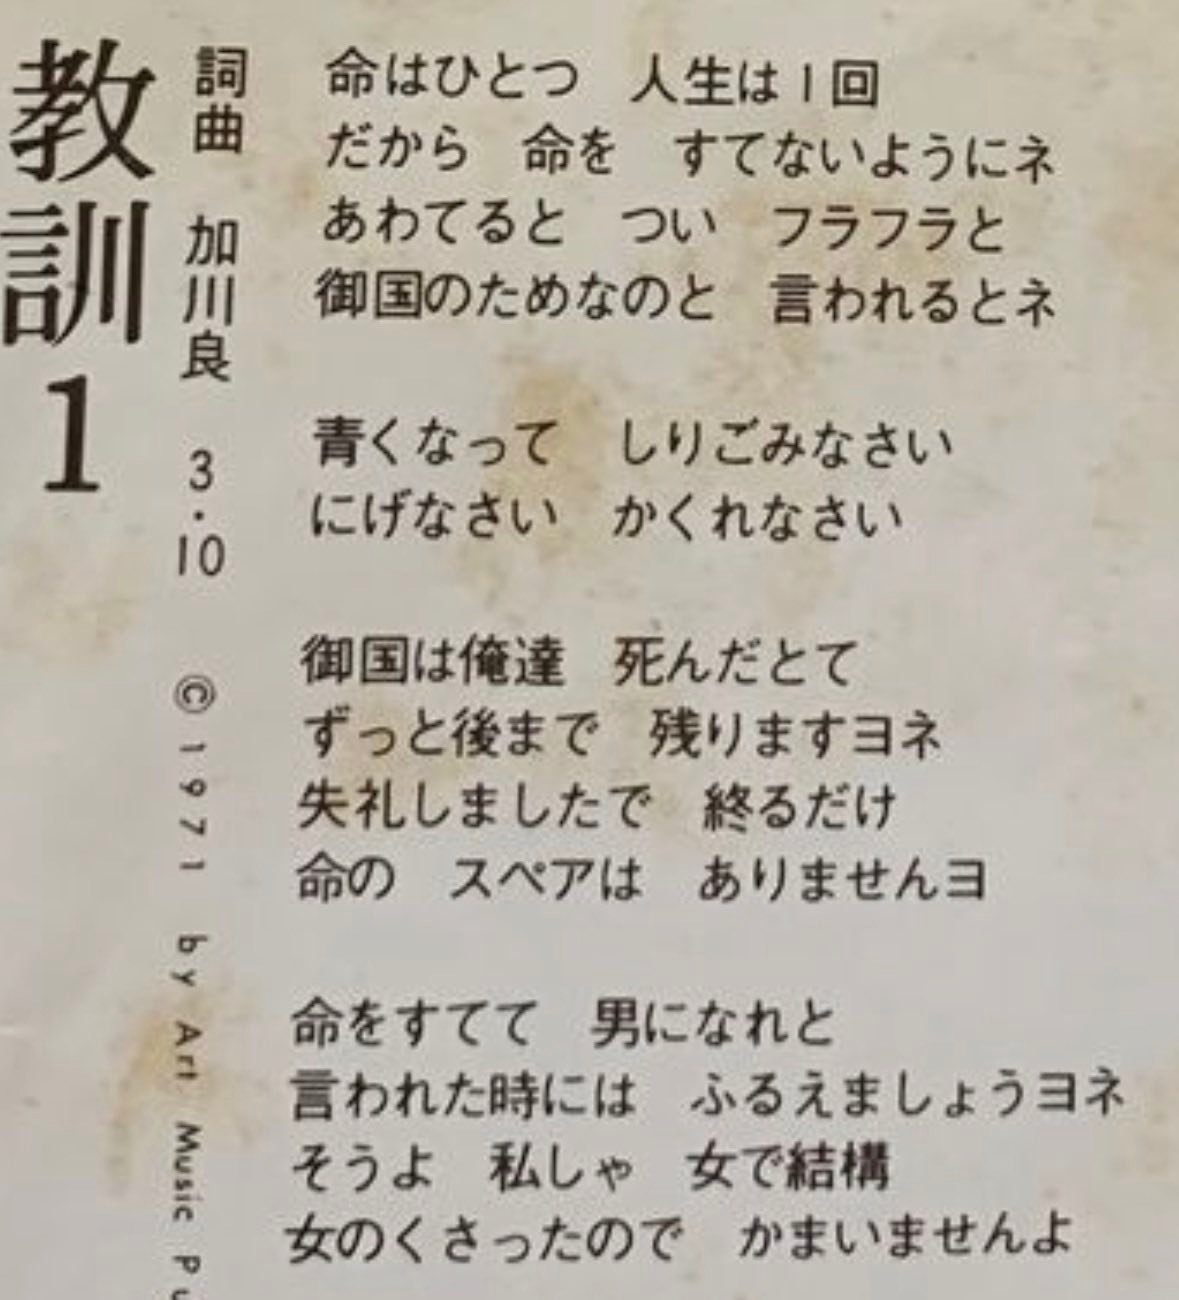 教訓1
詞曲 加川良 3・10 ©1971 by Art Music Pu
命はひとつ　人生は1回
だから　命を　すてないようにネ
あわてると　つい　フラフラと
御国のためなのと　言われるとネ
青くなって　しりごみなさい
にげなさい　かくれなさい
御国は俺達　死んだとて
ずっと後まで　残りますヨネ
失礼しましたで　終るだけ
命の　スペアは　ありませんヨ
命をすてて　男になれと
言われた時には　ふるえましょうヨネ
そうよ　私しゃ　女で結構
女のくさったので　かまいませんよ